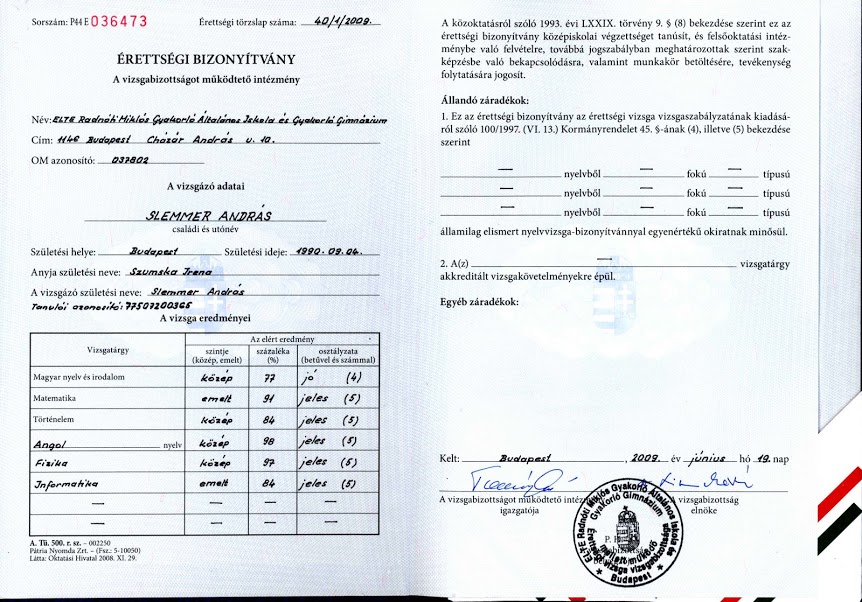 Sorszám: P44 E 036473
Érettségi törzslap száma: 40/1/2009.
ÉRETTSÉGI BIZONYÍTVÁNY
A vizsgabizottságot működtető intézmény
Név: ELTE Radnóti Miklós Gyakorló Általános Iskola és Gyakorló Gimnázium
Cím: 1146 Budapest Cházár András u. 10.
OM azonosító: 037802
A vizsgázó adatai
SLEMMER ANDRÁS
családi és utónév
Születési helye: Budapest Születési ideje: 1990. 09. 04.
Anyja születési neve: Szumska Irena
A vizsgázó születési neve: Slemmer András
Tanulói azonosító: 77507200365
A vizsga eredményei
Vizsgatárgy
Az elért eredmény
szintje (közép, emelt)
százaléka (%)
osztályzata (betűvel és számmal)
Magyar nyelv és irodalom közép 77 jó (4)
Matematika emelt 91 jeles (5)
Történelem közép 84 jeles (5)
Angol nyelv közép 98 jeles (5)
Fizika közép 97 jeles (5)
Informatika emelt 84 jeles (5)
— — — —
— — — —
A. Tü. 500. r. sz. – 002250
Pátria Nyomda Zrt. – (Fsz.: 5-10050)
Látta: Oktatási Hivatal 2008. XI. 29.
A közoktatásról szóló 1993. évi LXXIX. törvény 9. § (8) bekezdése szerint ez az
érettségi bizonyítvány középiskolai végzettséget tanúsít, és felsőoktatási intéz-
ménybe való felvételre, továbbá jogszabályban meghatározottak szerint szak-
képzésbe való bekapcsolódásra, valamint munkakör betöltésére, tevékenység
folytatására jogosít.
Állandó záradékok:
1. Ez az érettségi bizonyítvány az érettségi vizsga vizsgaszabályzatának kiadásá-
ról szóló 100/1997. (VI. 13.) Kormányrendelet 45. §-ának (4), illetve (5) bekezdése
szerint
— nyelvből — fokú — típusú
— nyelvből — fokú — típusú
— nyelvből — fokú — típusú
államilag elismert nyelvvizsga-bizonyítvánnyal egyenértékű okiratnak minősül.
2. A(z) — vizsgatárgy
akkreditált vizsgakövetelményekre épül.
Egyéb záradékok:
Kelt: Budapest, 2009. év június hó 19. nap
A vizsgabizottságot működtető inté
igazgatója
A vizsgabizottság
elnöke
P. H.
ELTE Radnóti Miklós Gyakorló Általános Iskola és
Gyakorló Gimnázium
mellett működő
Érettségi vizsga vizsgabizottsága
Budapest